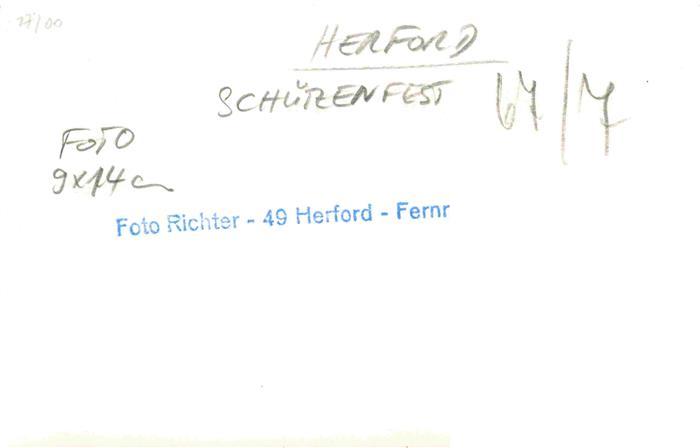 27/00
HERFORD
SCHÜTZENFEST
FOTO
9x14 cm
Foto Richter - 49 Herford - Fernr